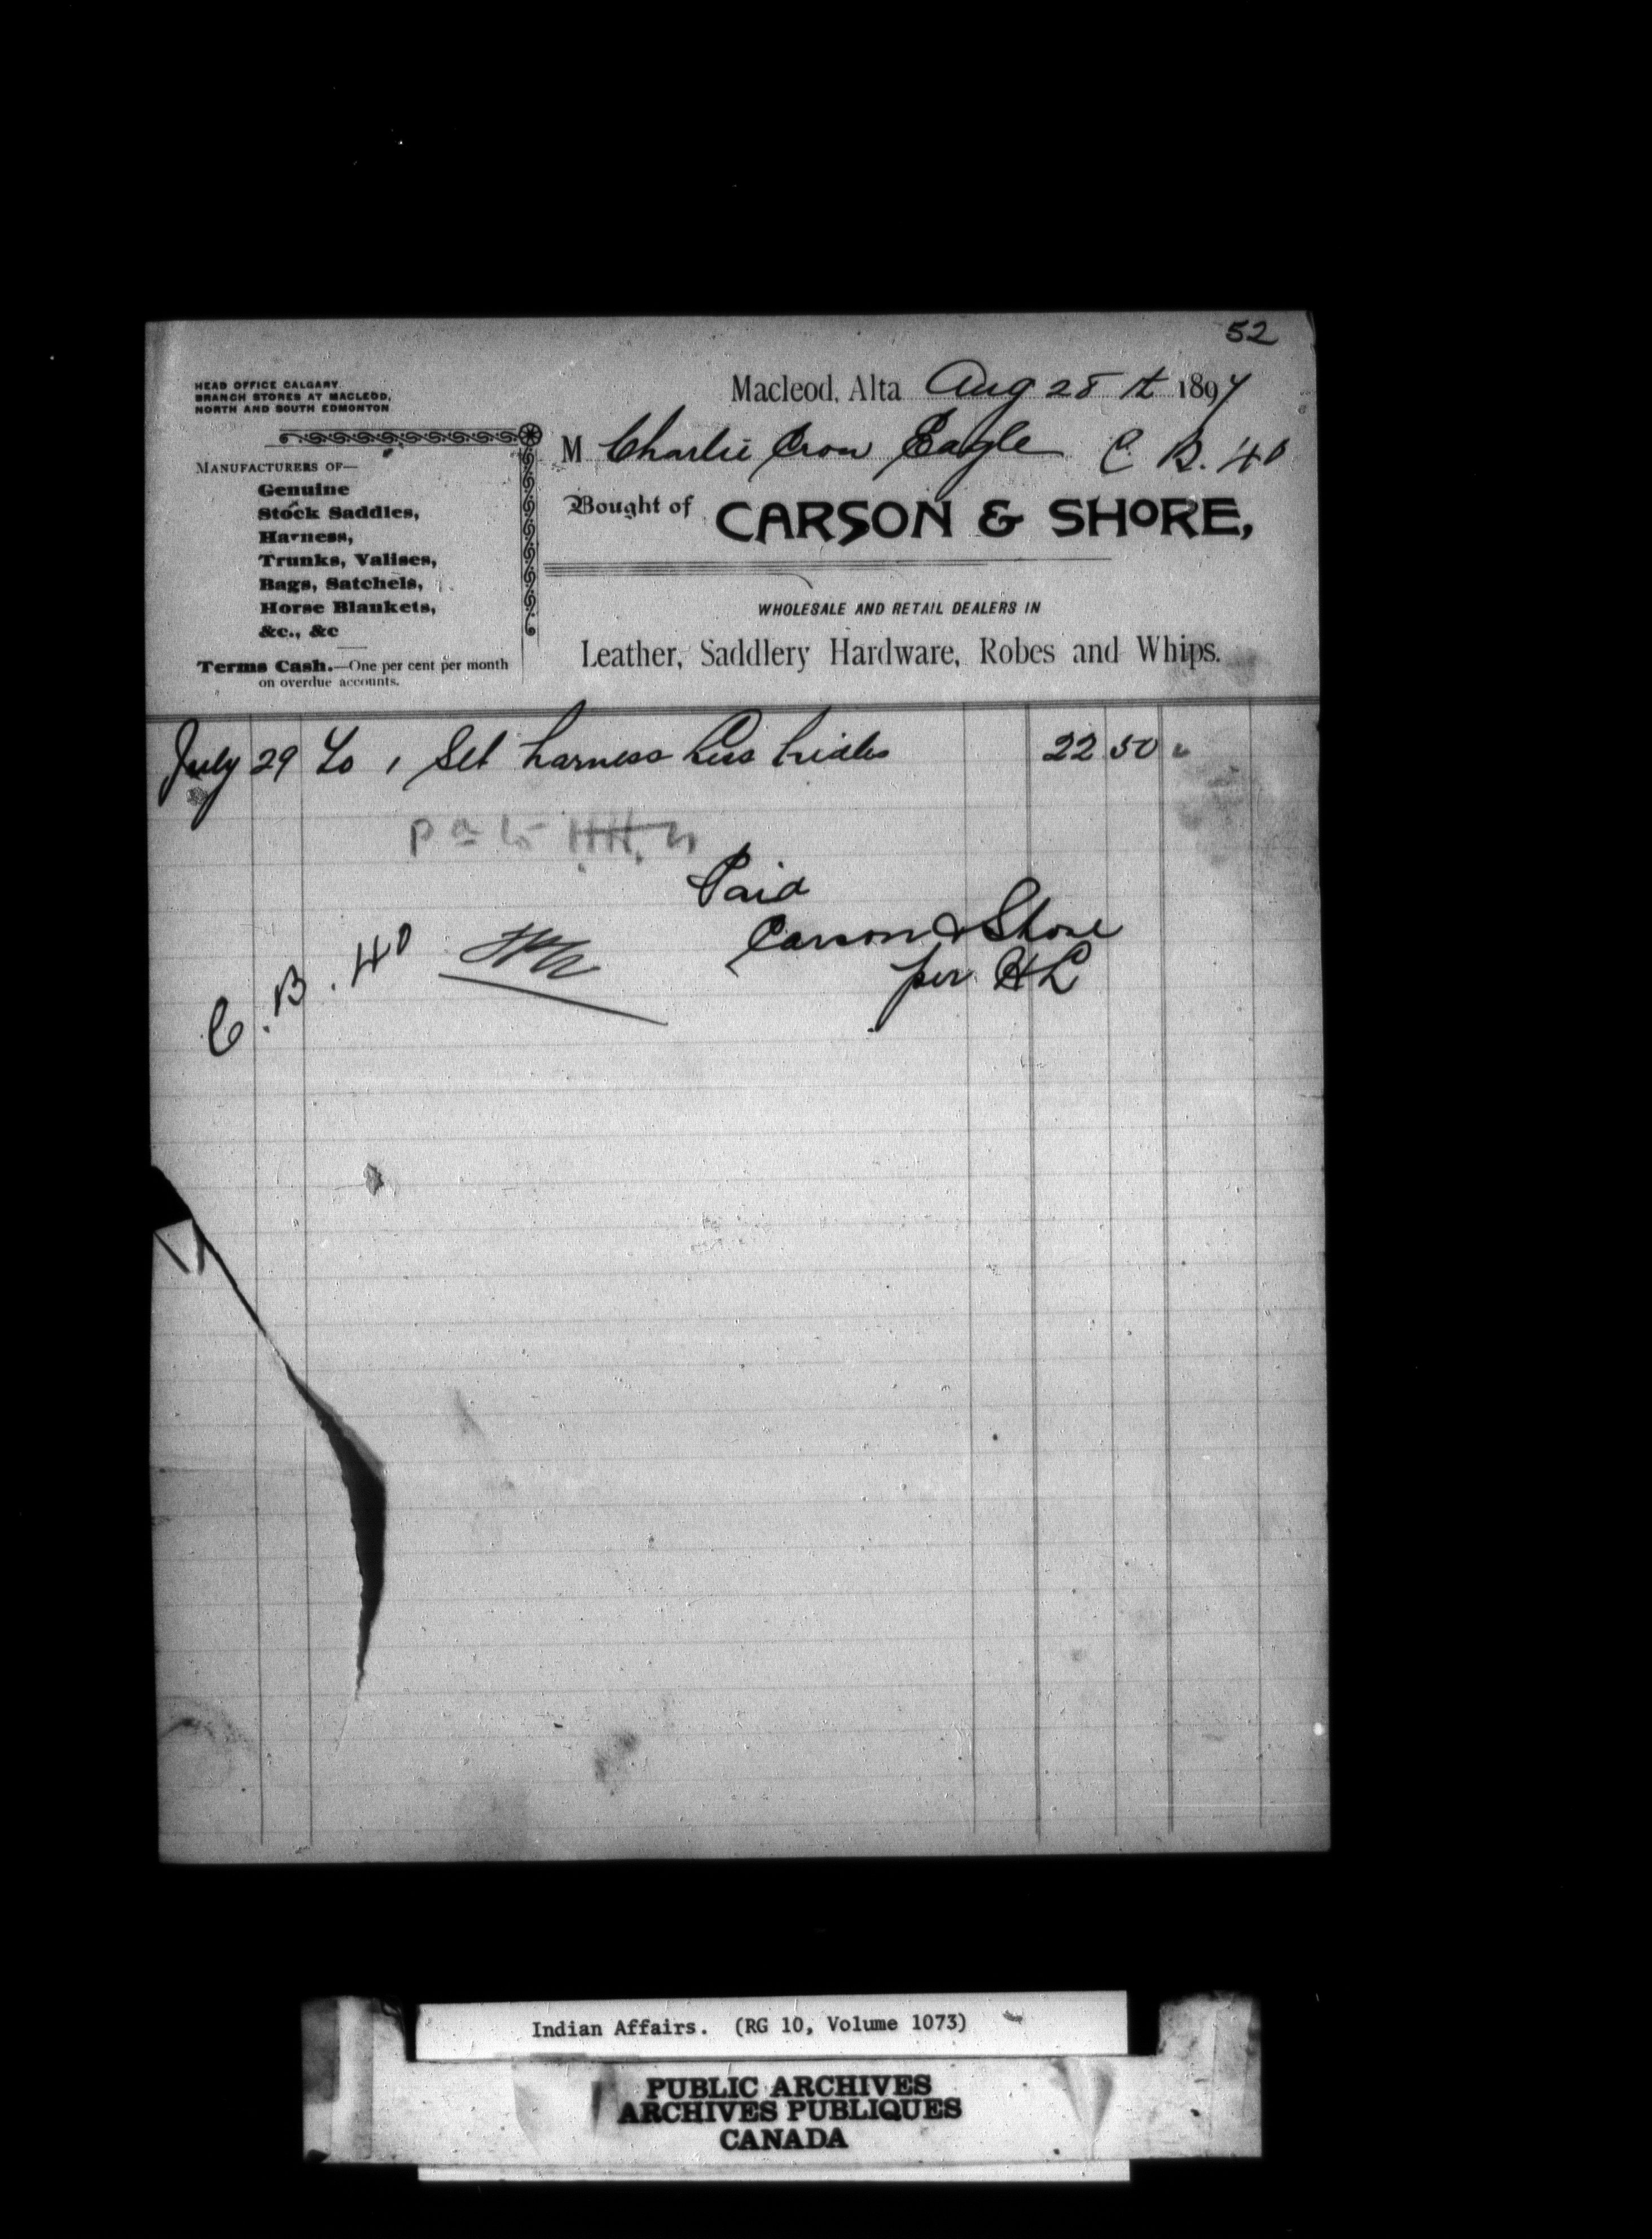 52
HEAD OFFICE CALGARY.
BRANCH STORES AT MACLEOD,
NORTH AND SOUTH EDMONTON
Macleod, Alta Aug 28th 1897
M Charlie Crow Eagle C. B. 40
MANUFACTURERS OF—
Genuine
Stock Saddles,
Harness,
Trunks, Valises,
Bags, Satchels,
Horse Blankets,
&c., &c
Terms Cash.—One per cent per month
on overdue accounts.
Bought of CARSON & SHORE,
WHOLESALE AND RETAIL DEALERS IN
Leather, Saddlery Hardware, Robes and Whips.
July 29 To 1 Set harness Less bridles 22 50
Paid
Carson & Shore
per HL
C. B. 40
Indian Affairs. (RG 10, Volume 1073)
PUBLIC ARCHIVES
ARCHIVES PUBLIQUES
CANADA